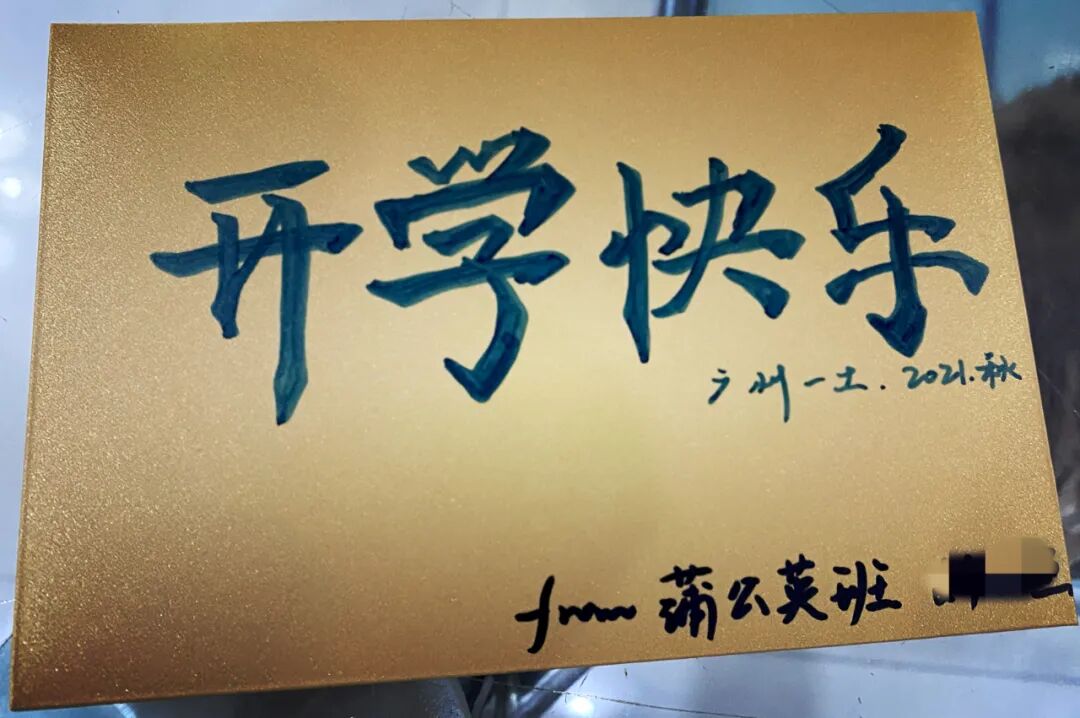 开学快乐
广州一土.2021.秋
from 蒲公英班